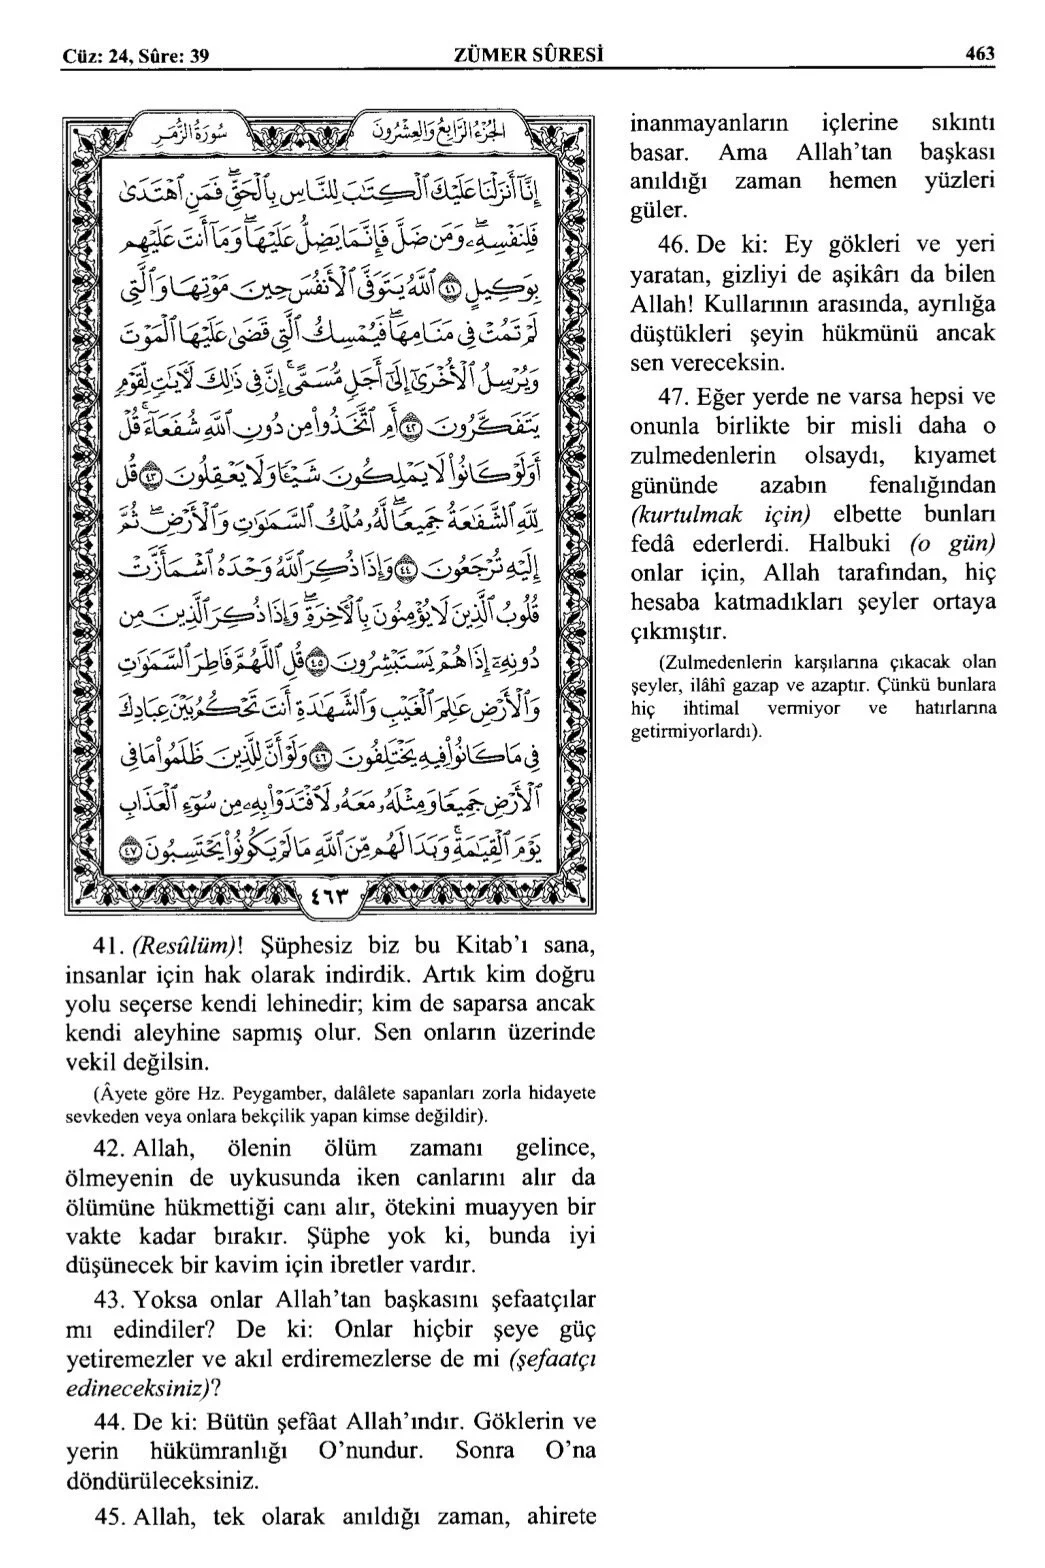 Cüz: 24, Sûre: 39 ZÜMER SÛRESİ 463
سُورَةُ الزُّمَر الجُزْءُ الرَّابِعُ وَالْعِشْرُونَ
إِنَّا أَنزَلْنَا عَلَيْكَ ٱلْكِتَٰبَ لِلنَّاسِ بِٱلْحَقِّ ۖ فَمَنِ ٱهْتَدَىٰ
فَلِنَفْسِهِۦ ۖ وَمَن ضَلَّ فَإِنَّمَا يَضِلُّ عَلَيْهَا ۖ وَمَا أَنتَ عَلَيْهِم
بِوَكِيلٍ ٤١ ٱللَّهُ يَتَوَفَّى ٱلْأَنفُسَ حِينَ مَوْتِهَا وَٱلَّتِى
لَمْ تَمُتْ فِى مَنَامِهَا ۖ فَيُمْسِكُ ٱلَّتِى قَضَىٰ عَلَيْهَا ٱلْمَوْتَ
وَيُرْسِلُ ٱلْأُخْرَىٰ إِلَىٰ أَجَلٍ مُّسَمًّى ۚ إِنَّ فِى ذَٰلِكَ لَءَايَٰتٍ لِّقَوْمٍ
يَتَفَكَّرُونَ ٤٢ أَمِ ٱتَّخَذُوا۟ مِن دُونِ ٱللَّهِ شُفَعَآءَ ۚ قُلْ
أَوَلَوْ كَانُوا۟ لَا يَمْلِكُونَ شَيْـًٔا وَلَا يَعْقِلُونَ ٤٣ قُل
لِّلَّهِ ٱلشَّفَٰعَةُ جَمِيعًا ۖ لَّهُۥ مُلْكُ ٱلسَّمَٰوَٰتِ وَٱلْأَرْضِ ۖ ثُمَّ
إِلَيْهِ تُرْجَعُونَ ٤٤ وَإِذَا ذُكِرَ ٱللَّهُ وَحْدَهُ ٱشْمَأَزَّتْ
قُلُوبُ ٱلَّذِينَ لَا يُؤْمِنُونَ بِٱلْءَاخِرَةِ ۖ وَإِذَا ذُكِرَ ٱلَّذِينَ مِن
دُونِهِۦٓ إِذَا هُمْ يَسْتَبْشِرُونَ ٤٥ قُلِ ٱللَّهُمَّ فَاطِرَ ٱلسَّمَٰوَٰتِ
وَٱلْأَرْضِ عَٰلِمَ ٱلْغَيْبِ وَٱلشَّهَٰدَةِ أَنتَ تَحْكُمُ بَيْنَ عِبَادِكَ
فِى مَا كَانُوا۟ فِيهِ يَخْتَلِفُونَ ٤٦ وَلَوْ أَنَّ لِلَّذِينَ ظَلَمُوا۟ مَا فِى
ٱلْأَرْضِ جَمِيعًا وَمِثْلَهُۥ مَعَهُۥ لَٱفْتَدَوْا۟ بِهِۦ مِن سُوٓءِ ٱلْعَذَابِ
يَوْمَ ٱلْقِيَٰمَةِ ۚ وَبَدَا لَهُم مِّنَ ٱللَّهِ مَا لَمْ يَكُونُوا۟ يَحْتَسِبُونَ ٤٧
٤٦٣
41. (Resûlüm)! Şüphesiz biz bu Kitab’ı sana,
insanlar için hak olarak indirdik. Artık kim doğru
yolu seçerse kendi lehinedir; kim de saparsa ancak
kendi aleyhine sapmış olur. Sen onların üzerinde
vekil değilsin.
(Âyete göre Hz. Peygamber, dalâlete sapanları zorla hidayete
sevkeden veya onlara bekçilik yapan kimse değildir).
42. Allah, ölenin ölüm zamanı gelince,
ölmeyenin de uykusunda iken canlarını alır da
ölümüne hükmettiği canı alır, ötekini muayyen bir
vakte kadar bırakır. Şüphe yok ki, bunda iyi
düşünecek bir kavim için ibretler vardır.
43. Yoksa onlar Allah’tan başkasını şefaatçılar
mı edindiler? De ki: Onlar hiçbir şeye güç
yetiremezler ve akıl erdiremezlerse de mi (şefaatçı
edineceksiniz)?
44. De ki: Bütün şefâat Allah’ındır. Göklerin ve
yerin hükümranlığı O’nundur. Sonra O’na
döndürüleceksiniz.
45. Allah, tek olarak anıldığı zaman, ahirete
inanmayanların içlerine sıkıntı
basar. Ama Allah’tan başkası
anıldığı zaman hemen yüzleri
güler.
46. De ki: Ey gökleri ve yeri
yaratan, gizliyi de aşikârı da bilen
Allah! Kullarının arasında, ayrılığa
düştükleri şeyin hükmünü ancak
sen vereceksin.
47. Eğer yerde ne varsa hepsi ve
onunla birlikte bir misli daha o
zulmedenlerin olsaydı, kıyamet
gününde azabın fenalığından
(kurtulmak için) elbette bunları
fedâ ederlerdi. Halbuki (o gün)
onlar için, Allah tarafından, hiç
hesaba katmadıkları şeyler ortaya
çıkmıştır.
(Zulmedenlerin karşılarına çıkacak olan
şeyler, ilâhî gazap ve azaptır. Çünkü bunlara
hiç ihtimal vermiyor ve hatırlarına
getirmiyorlardı).